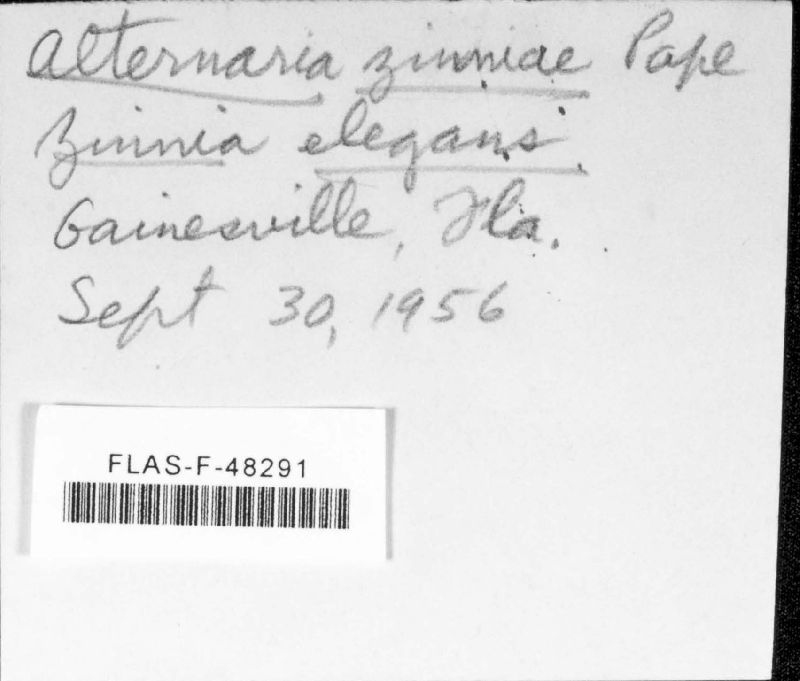 Alternaria zinniae Pape
Zinnia elegans.
Gainesville, Fla.
Sept 30, 1956
FLAS-F-48291